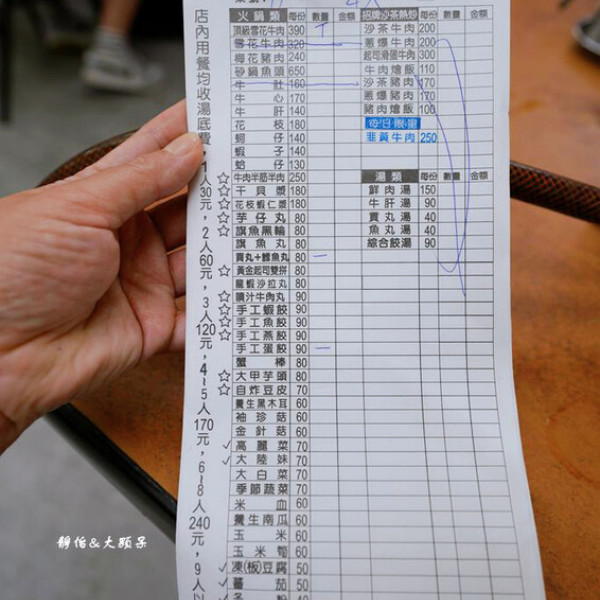 店內用餐均收湯底費,1人30元,2人60元,3人120元,4~5人170元,6~8人240元,9人以
火鍋類 每份 數量 金額
頂級雪花牛肉 390
雪花牛肉 320
梅花豬肉 240
砂鍋魚頭 650
牛肚 160
牛心 170
牛肝 140
花枝 180
蚵仔 140
蝦子 140
蛤仔 130
☆ 牛肉半筋半肉 250
☆ 干貝漿 180
☆ 花枝蝦仁漿 180
☆ 芋仔丸 80
☆ 旗魚黑輪 80
旗魚丸 80
貢丸+鱈魚丸 80 一
☆ 黃金起司雙拼 80
龍蝦沙拉丸 80
☆ 噴汁牛肉丸 90
☆ 手工蝦餃 90
☆ 手工魚餃 90
☆ 手工燕餃 90
手工蛋餃 90 一
蟹棒 80
☆ 大甲芋頭 80
☆ 自炸豆皮 70
養生黑木耳 60
袖珍菇 60
金針菇 60
✓ 高麗菜 70
✓ 大陸妹 70
大白菜 70
季節蔬菜 70
米血 60
養生南瓜 60
玉米 60
玉米筍 60
✓ 凍(板)豆腐 50
✓ 蕃茄 50
招牌沙茶熱炒 每份 數量 金額
沙茶牛肉 200
蔥爆牛肉 200
起司滑蛋牛肉 300
牛肉燴飯 110
沙茶豬肉 170
蔥爆豬肉 170
豬肉燴飯 100
韭黃牛肉 250
湯類 每份 數量 金額
鮮肉湯 150
牛肝湯 90
貢丸湯 40
魚丸湯 40
綜合餃湯 90
靜怡&大顆呆